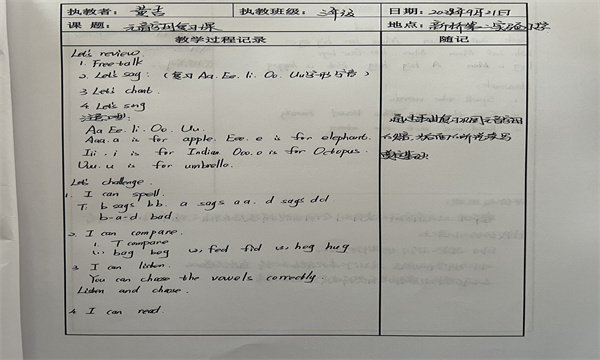 执教者: 黄吉 执教班级: 三年级 日期: 2023年9月21日
课题: 元音字母复习课 地点: 新桥第二实验小学
教学过程记录 随记
Let's review.
1. Free-talk
2. Let's say: (复习 Aa. Ee. Ii. Oo. Uu 字形与音)
3 Let's chant.
4. Let's sing
Aa Ee. Ii. Oo. Uu.
Aaa. a is for apple. Eee. e is for elephant.
Iii. i is for Indian Ooo. o is for Octopus.
Uuu. u is for umbrella.
Let's challenge.
1. I can spell.
T. b says bb. a says aa. d says dd
b-a-d bad.
2. I can compare.
1. T compare
11) bag beg 2), fed fid 3), hog hug
3 I can listen.
You can choose the vowels correctly
Listen and choose.
4 I can read.